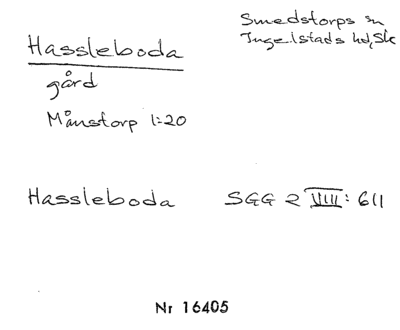 Hassleboda
Smedstorps sn
Ingelstads hd, Sk
gård
Månstorp 1:20
Hassleboda SGG 2 VIII: 611
Nr 16405